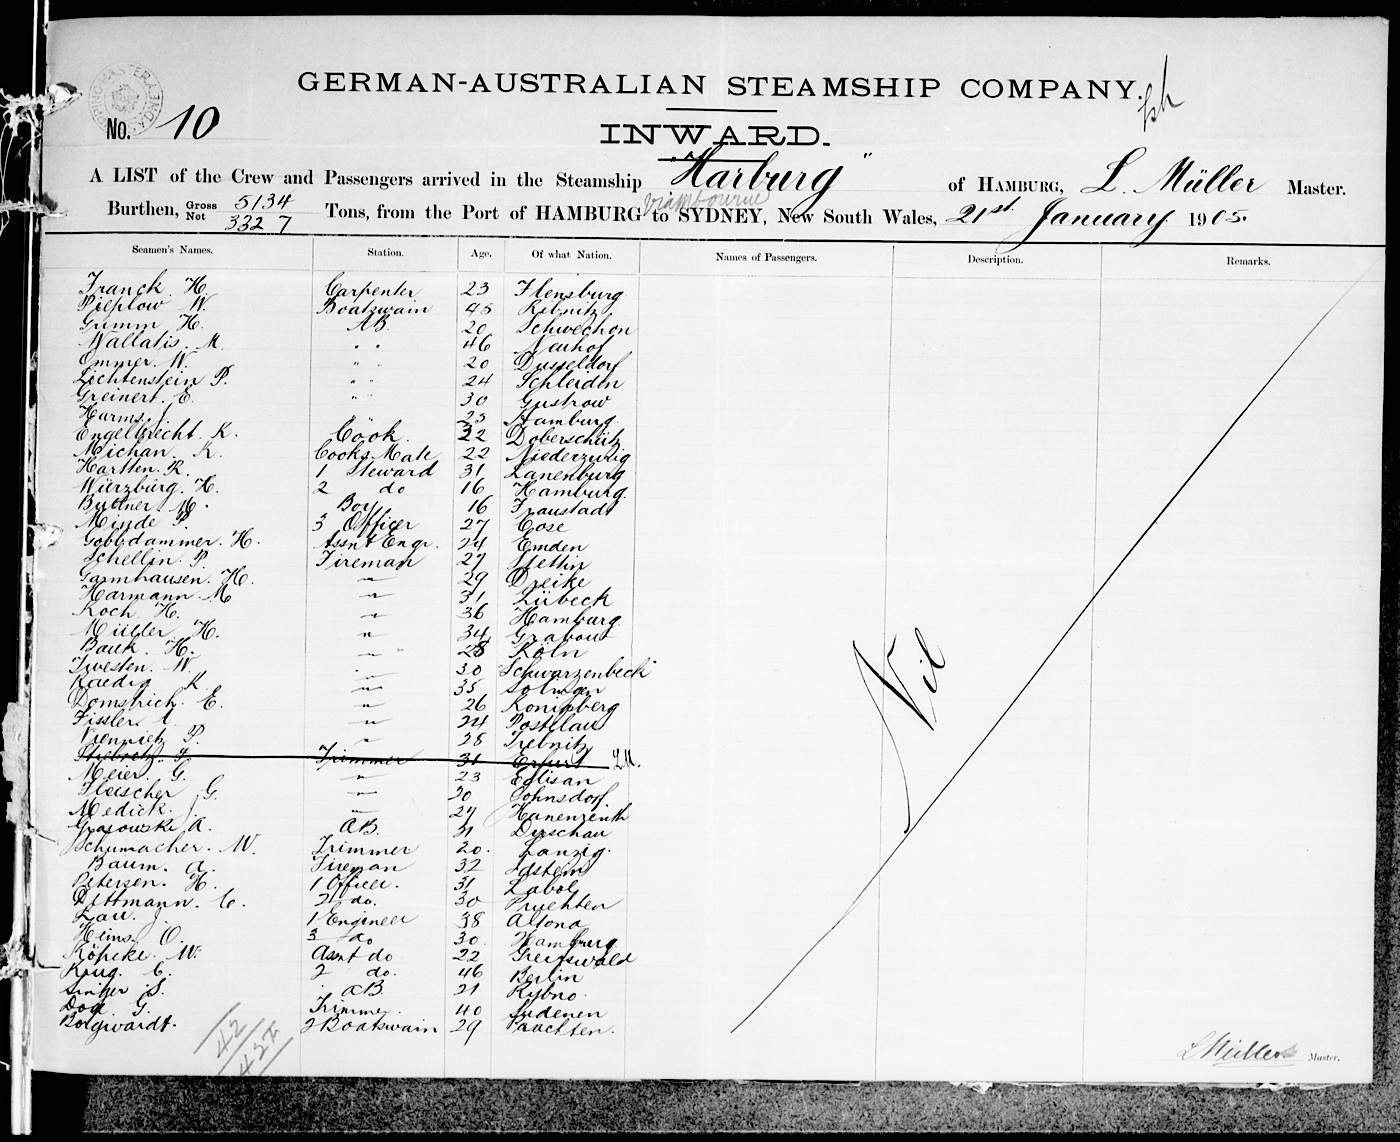 GERMAN-AUSTRALIAN STEAMSHIP COMPANY.
No. 10
INWARD.
A LIST of the Crew and Passengers arrived in the Steamship "Harburg" of HAMBURG, L. Müller Master.
Burthen, Gross 5134 Tons, from the Port of HAMBURG to SYDNEY, New South Wales, 21st January 1905.
Not 3327
Seamen's Names. Station. Age. Of what Nation. Names of Passengers. Description. Remarks.
Franck H. Carpenter 23 Flensburg
Pieplow W. Boatswain 45 Ribnitz
Grimm H. AB. 20 Schwechon
Wallatis. M. " " 46 Neuhof
Ommer W. " " 20 Dusseldorf
Lichtenstein P. " " 24 Schleiden
Greinert. E. " " 30 Gustrow
Harms. J. " 23 Hamburg
Engelbrecht. K. Cook. 22 Doberschütz
Michan. K. Cooks Mate 22 Niederzwig
Hartten. R. 1 Steward 31 Lanenburg
Würzburg. H. 2 do 16 Hamburg.
Buttner. M. Boy 16 Fraustadt
Minde P. 3 Officer 27 Cose
Gobbdammer. H. Assnt Engr. 24 Emden
Schellin. P. Fireman 27 Stettin
Garmhausen. H. " 29 Dreike
Harmann. M " 31 Lübeck
Koch H. " 36 Hamburg
Müller. H. " 34 Grabow
Bauk. H. " 28 Köln
Twesten. W. " 30 Schwarzenbeck
Kaedig K. " 35 Solingen
Domstrich. E. " 26 Konigberg
Fissler. " 24 Postelau
Viennietz P. " 28 Trebnitz
Trimmer 31 Erfurt L.M.
Meier. G. " 23 Eglisan
Fleischer G. " 20 Johnsdorf.
Medick. J. " 27 Hanenzenth
Grasowski A. AB. 31 Dirschau
Schumacher. W. Trimmer 20. Lanzig.
Baum. A. Fireman 32 Idstein
Petersen. H. 1 Officer. 31 Laboe
Dettmann. C. 2 do. 30 Pruchten
Lau. J. 1 Engineer 38 Altona
Heins. O. 3 do 30. Hamburg
Köpcke. W. Assnt do 22 Greifswald
Krug. C. 2 do. 46 Berlin
S. AB 21 Rybno.
G. Trimmer. 40
Borgwardt. 2 Boatswain 29 Prachten.
Nil
42
L Müller Master.